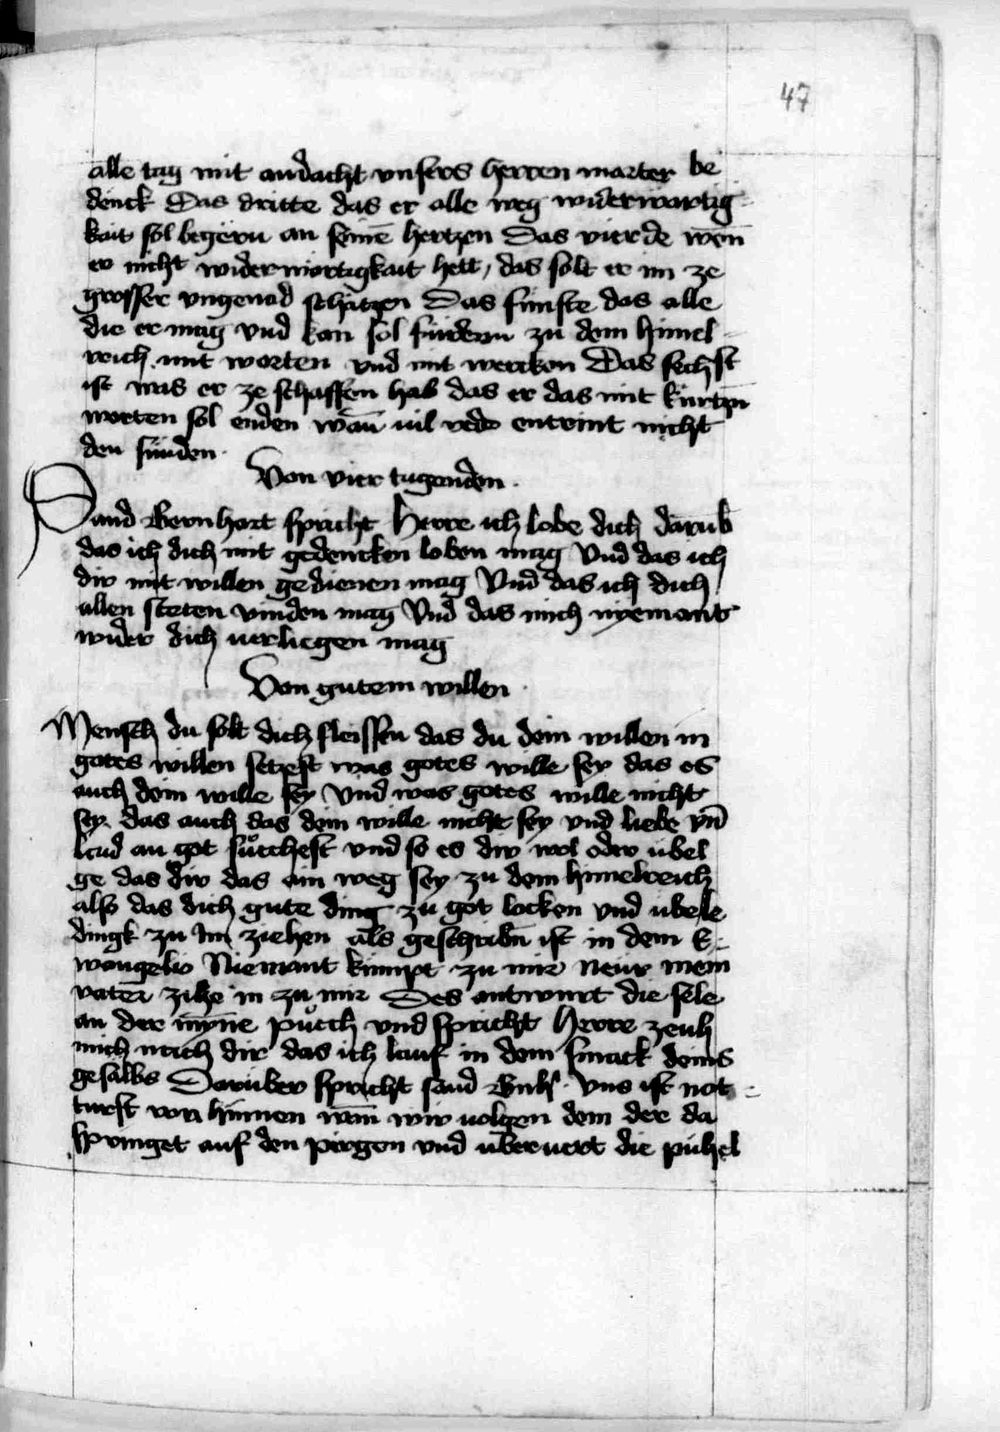 47
alle tag mit andacht vnsers herren marter be
denck Das dritte das er alle weg widerwartig
kait sol begern an seinē hertzen Das vierde wen̄
er nicht widerwortigkait hett, das solt er im ze
grosser vngenad schatzen Das fünfte das alle
die er mag vnd kan sol fürdern zu dem himel
reich mit worten vnd mit wercken Das sechst
ist was er ze schaffen hab das er das mit kurtzn̄
worten sol enden wan̄ uil rede entrint nicht
den sünden.
Von vier tugenden.
Sand Bernhart spricht Herre ich lobe dich darub̄
das ich dich mit gedencken loben mag Vnd das ich
dir mit willen gedienen mag Vnd das ich dich
allen steten vinden mag Vnd das mich nyemant
wider dich uerliegen mag
Von gutem willen.
Mensch du solt dich fleissen das du dein willen in
gotes willen setzest was gotes wille sey das es
auch dein wille sey Vnd was gotes wille nicht
sey das auch das dein wille nicht sey vnd liebe vn̄
laid an got suͦchest vnd so es dir wol oder übel
ge das dir das ain weg sey zu dem himelreich
also das dich gute ding zu got locken vnd ubele
dingk zu Im ziehen als geschribn̄ ist in dem E
wangelio Niemant kumpt zu mir neur mein
vater zihe in zu mir Des antwurt die sele
an der myn̄e puͦch vnd spricht Herre zeuh
mich nach dir das ich lauf in dem smack deins
gesalbs Daruber spricht sand Bnh̄. Vns ist not
turft von hinnen wan̄ wir uolgen dem der da
springet auf den pergen vnd uberuert die pühel